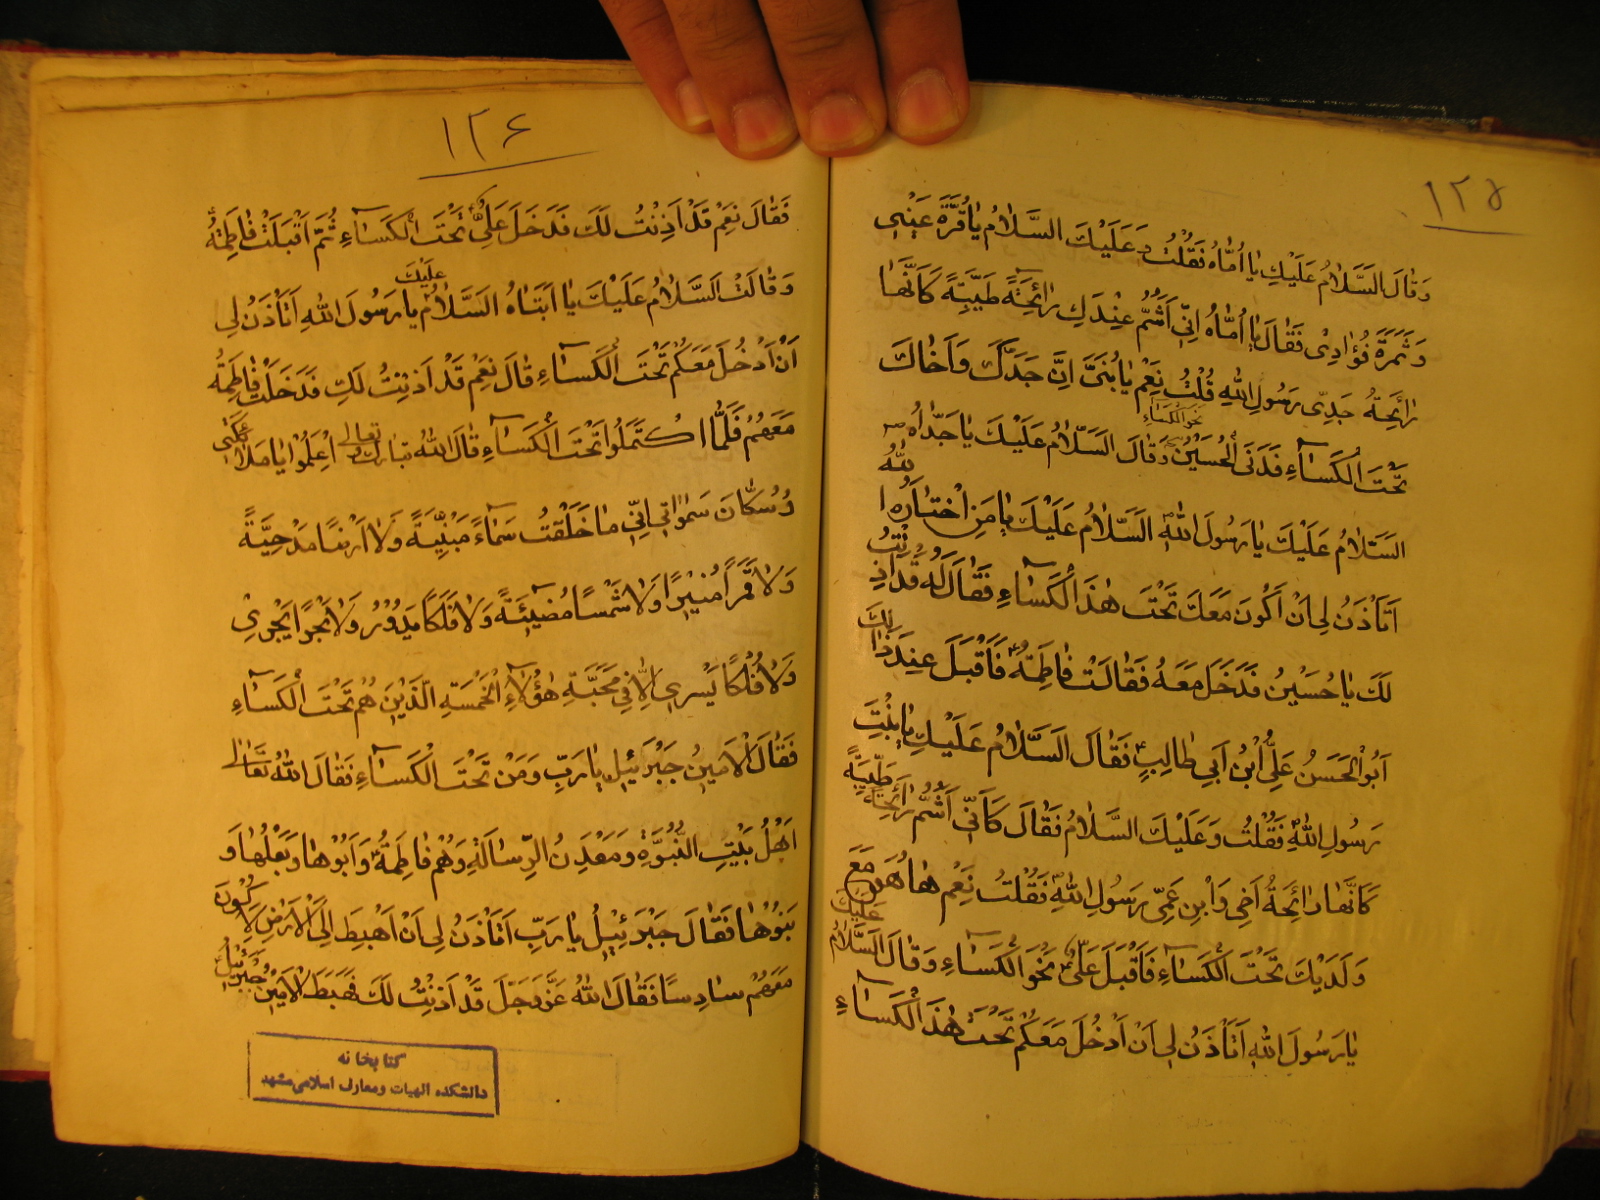 ١٢٥
وَقالَ السَّلامُ عَلَيْكِ يا اُمّاهُ فَقُلْتُ وَ عَلَيْكَ السَّلامُ يا قُرَّةَ عَيْنِي
وَ ثَمَرَةَ فُؤادِىْ فَقالَ يا اُمّاهُ اِنّى اَشَمُّ عِنْدَكِ رائِحَةً طَيِّبَةً كَاَنَّها
رائِحَةُ جَدِّى رَسُولِ اللهِ قُلْتُ نِعَمْ يا بُنَىَّ اِنَّ جَدَّكَ وَ اَخاكَ
نَحْوَ الْكِساءِ
تَحْتَ الْكَسآءِ فَدَنَى الْحُسَيْنُ وَ قالَ السَّلامُ عَلَيْكَ يا جَدّاهُ
السَّلامُ عَلَيْكَ يا رَسُولَ اللهِ السَّلامُ عَلَيْكَ يا مَنِ اخْتارَهُ اللهُ
اَتَاْذَنُ لِى اَنْ اَكُونَ مَعَكَ تَحْتَ هٰذَ الْكَسآءِ فَقالَ لَهُ قَدْ اَذِنْتُ
لَكَ يا حُسَيْنُ فَدَخَلَ مَعَهُ فَقالَتْ فاطِمَةُ فَاَقْبَلَ عِنْدَ ذالِكَ
اَبُو الْحَسَنُ عَلِىُّ ابْنُ اَبِي طالِبٍ فَقالَ السَّلامُ عَلَيْكِ يا بِنْتِ
رَسُولِ اللهِ فَقُلْتُ وَ عَلَيْكَ السَّلامُ فَقالَ كَاَنّى اَشَمُّ رائِحَةً طَيِّبَةً
كَاَنَّها رائِحَةُ اَخِى وَ ابْنِ عَمِّى رَسُولِ اللهِ فَقُلْتُ نِعَمْ ها هُوَ مَعَ
وَلَدَيْكَ تَحْتَ الْكَسآءِ فَاَقْبَلَ عَلِىٌّ نَحْوَ الْكَسآءِ وَ قالَ السَّلامُ عَلَيْكَ
يا رَسُولَ اللهِ اَتَاْذَنُ لِى اَنْ اَدْخُلَ مَعَكُمْ تَحْتَ هٰذَ الْكَسآءِ
١٢۶
فَقالَ نِعَمْ قَدْ اَذِنْتُ لَكَ فَدَخَلَ عَلِىٌّ تَحْتَ الْكَسآءِ ثُمَّ اَقْبَلَتْ فاطِمَةُ
وَ قالَتْ اَلسَّلامُ عَلَيْكَ يا اَبَتاهُ السَّلامُ عَلَيْكَ يا رَسُولَ اللهِ اَتَاْذَنُ لِى
اَنْ اَدْخُلَ مَعَكُمْ تَحْتَ الْكَسآءِ قالَ نِعَمْ قَدْ اَذِنْتُ لَكِ فَدَخَلَتْ فاطِمَةُ
مَعَهُمْ فَلَمَّا اكْتَمَلُوا تَحْتَ الْكَسآءِ قالَ اللهُ تبارك و تعالى اِعْلَمُوا يا مَلائِكَتى
وَ سُكّانَ سَمٰواتى اِنّى ما خَلَقْتُ سَمآءً مَبْنِيَّةً وَلا اَرْضًا مَدْحِيَّةً
وَلا قَمَرًا مُنِيرًا وَلا شَمْسًا مُضيئَةً وَلا فَلَكًا يَدُورُ وَلا بَحْرًا يَجْرِىْ
وَلا فُلْكًا يَسْرى اِلّا فِى مَحَبَّةِ هٰؤُلآءِ الْخَمْسَةِ الَّذينَ هُمْ تَحْتَ الْكَسآءِ
فَقالَ الْاَمينُ جَبْرَئيلُ يا رَبِّ وَمَنْ تَحْتَ الْكَسآءِ فَقالَ اللهُ تَعالى
اَهْلُ بَيْتِ النُّبُوَّةِ وَ مَعْدَنُ الرِّسالَةِ وَهُمْ فاطِمَةُ وَ اَبُوها وَ بَعْلُها وَ
بَنُوها فَقالَ جَبْرَئيلُ يا رَبِّ اَتَاْذَنُ لِى اَنْ اَهْبِطَ اِلَى الْاَرْضِ لِاَكُونَ
مَعَهُمْ سادِسًا فَقالَ اللهُ عَزَّ وَ جَلَّ قَدْ اَذِنْتُ لَكَ فَهَبَطَ الْاَمينُ جَبْرَئيلُ
کتابخانه
دانشکده الهیات و معارف اسلامی مشهد